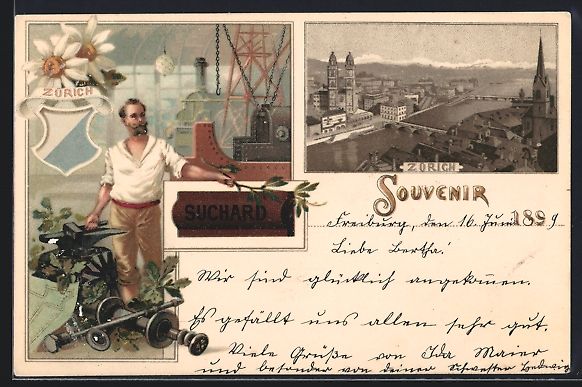 ZÜRICH
SUCHARD
ZÜRICH
SOUVENIR
Freiburg, den 16. Juni 1899
Liebe Bertha!
Wir sind glücklich angekommen.
Es gefällt uns allen sehr gut.
Viele Grüße von Ida Maier
und besonder von deiner Schwester Hedwig